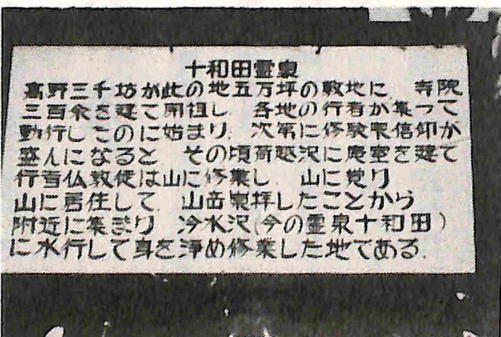 十和田霊泉
高野三千坊が此の地五万坪の敷地に 寺院
三百余を建て開祖し 各地の行者が集って
勤行したのに始まり 次第に修験宗信仰が
盛んになると その頃荷越沢に庵室を建て
行者仏教徒は山に修業し 山に覚り
山に居住して 山岳崇拝したことから
附近に集まり 冷水沢(今の霊泉十和田)
に水行して身を浄め修業した地である.